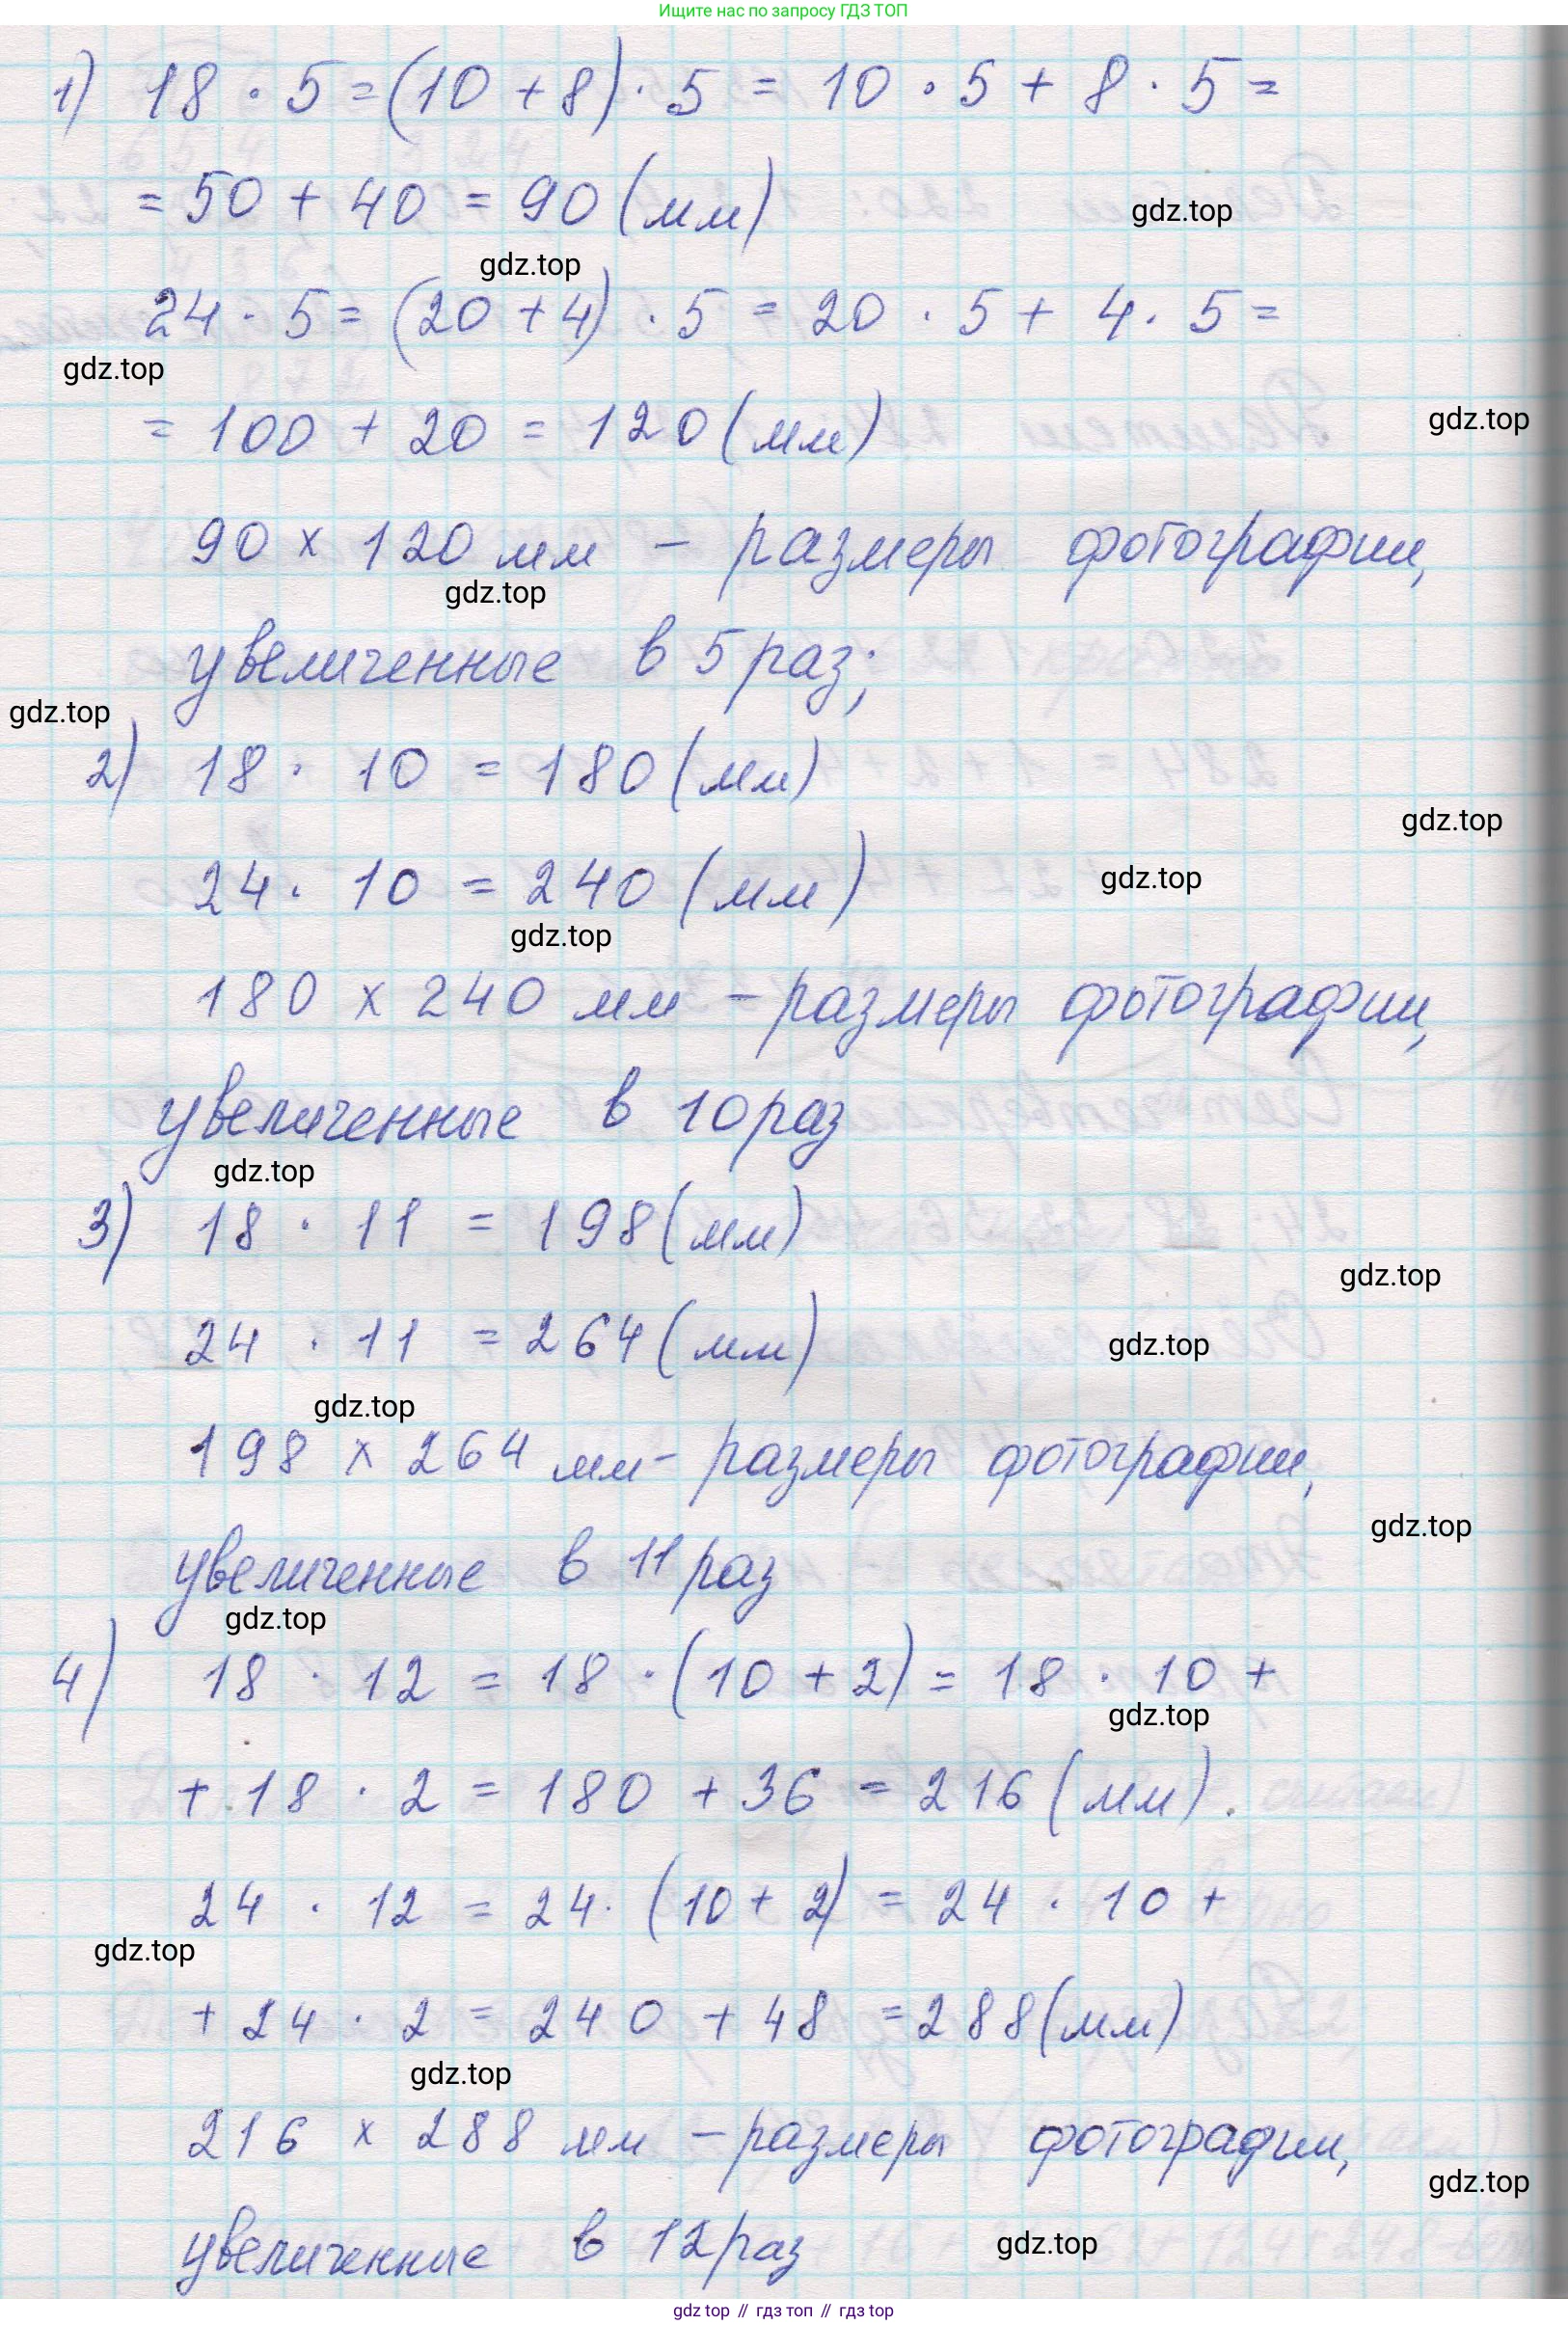 Ищите нас по запросу ГДЗ ТОП
1) 18 · 5 = (10 + 8) · 5 = 10 · 5 + 8 · 5 =
= 50 + 40 = 90 (мм)
gdz.top
gdz.top
24 · 5 = (20 + 4) · 5 = 20 · 5 + 4 · 5 =
gdz.top
= 100 + 20 = 120 (мм)
gdz.top
90 x 120 мм – размеры фотографии,
gdz.top
увеличенные в 5 раз;
gdz.top
2) 18 · 10 = 180 (мм)
gdz.top
24 · 10 = 240 (мм)
gdz.top
gdz.top
180 x 240 мм – размеры фотографии,
увеличенные в 10 раз
gdz.top
3) 18 · 11 = 198 (мм)
gdz.top
24 · 11 = 264 (мм)
gdz.top
gdz.top
198 x 264 мм – размеры фотографии,
gdz.top
увеличенные в 11 раз
gdz.top
4) 18 · 12 = 18 · (10 + 2) = 18 · 10 +
gdz.top
+ 18 · 2 = 180 + 36 = 216 (мм).
24 · 12 = 24 · (10 + 2) = 24 · 10 +
gdz.top
+ 24 · 2 = 240 + 48 = 288 (мм)
gdz.top
216 x 288 мм – размеры фотографии,
gdz.top
увеличенные в 12 раз
gdz.top
gdz top // гдз топ // гдз top